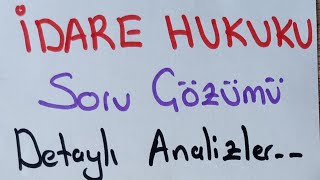 İDARE HUKUKU
Soru Çözümü
Detaylı Analizler--